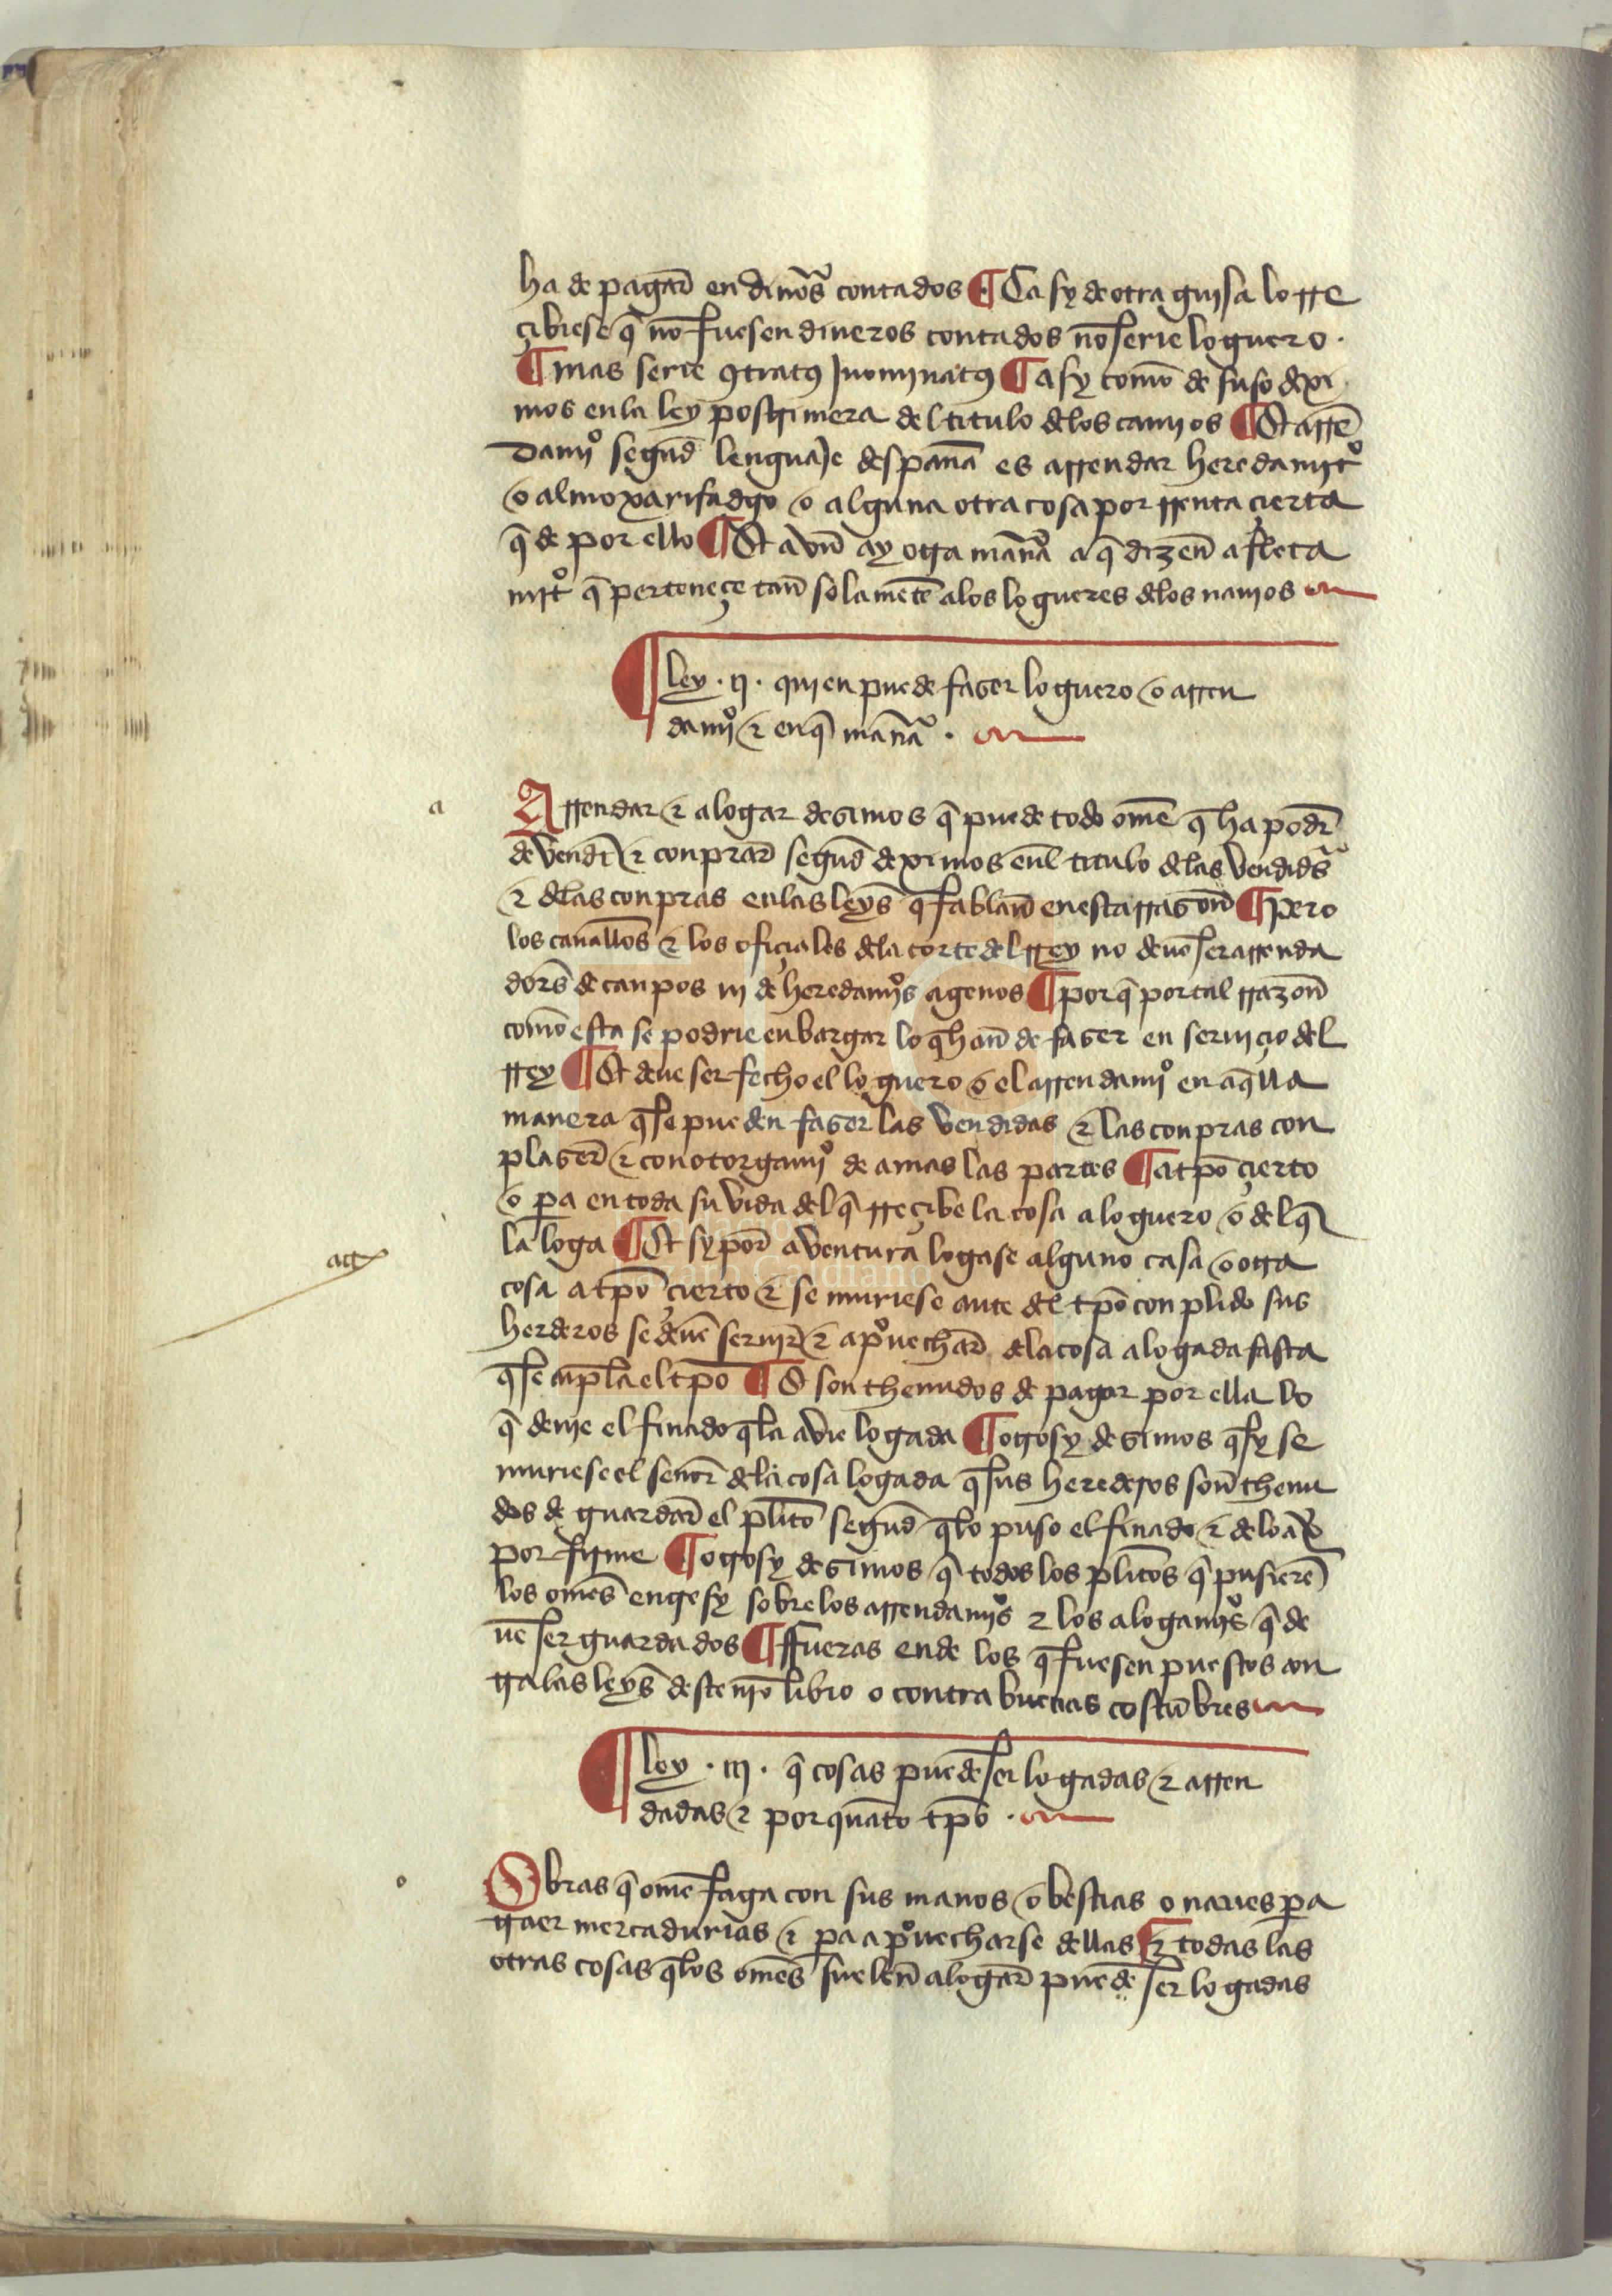 ha de pagar̄ en dinōs contados ¶ Ca sy de otra guisa lo rre
çibiese q̄ no̅ fuesen dineros contados no̅ serie loguero .
¶ mas serie 9trat9 Jnominat9 ¶ asy como̅ de suso dixi
mos en la ley postrimera del titulo delos camios ¶ Et arre̅
damjº segu̅d lenguaje despan̅a es arrendar heredamjtº
o almoxarifadgo o alguna otra cosa por rrenta çierta
q̄ de por ello ¶ Et avn̅ ay otra man̅a a q̄ dizen̅ afleta
mjtº q̄ perteneçe tan̅ solame̅te alos logueres delos nauios
¶ ley . ij . quien puede faser loguero o arren
damjº & en q̄ man̅a .
a
Arrendar & alogar desimos q̄ puede todo ome̅ q̄ ha pode̅r
de vende̅r & conprar̄ segu̅d diximos enl titulo delas vendidas
& delas conpras enlas leys̄ q̄ fablan̅ en esta rrason̅ ¶ pero
los caualłos & los ofiçiales dela corte del rrey no deue̅ ser arrenda
dors̄ de canpos nj de heredamjºs agenos ¶ por q̄ por tal rrazon̅
como̅ esta se podrie enbargar lo q̄ han̅ de faser en serujçio del
rrey ¶ Et deue ser fecho el loguero o el arrendamjº en aq̄lla
manera q̄ se pueden faser las vendidas & las conpras con
plaser̄ & con otorgamjº de amas las partes ¶ a tp̅o çierto
o p̱a en toda su vida del q̄ rreçibe la cosa a loguero o del q̄
la loga ¶ Et sy por̄ aventura logase alguno casa o otra
cosa a tp̅o çierto & se muriese ante del tp̅o conplido sus
herderos se deue̅ serujr̄ & apºuechar̄ dela cosa alogada fasta
q̄ se cu̅pla el tp̅o ¶ E son thenudos de pagar por ella lo
q̄ deuie el finado q̄ la avie logada ¶ otrosy desimos q̄ sy se
muriese el sen̅or̄ dela cosa logada q̄ sus herederos son̅ thenu
dos de guardar̄ el pl̅ito segu̅d q̄ lo puso el finado & de lo av̄
por firme ¶ otrosy desimos q̄ todos los pl̅itos q̄ pusiere̅
los omes̄ entre sy sobre los arrendamjºs & los alogamjºs q̄ de
ue̅ ser guardados ¶ ffueras ende los q̄ fuesen puestos con
tra las leys̄ deste nr̅o libro o contra buenas costu̅bres
¶ ley . iij . q̄ cosas puede̅ ser logadas & arren
dadas & por qua̅to tp̅o .
o
Obras q̄ ome̅ faga con sus manos o bestias o naues p̱a
traer mercadurias & p̱a apºuecharse dellas ¶ & todas las
otras cosas q̄ los omes̄ suelen̅ alogar̄ puede̅ ser logadas